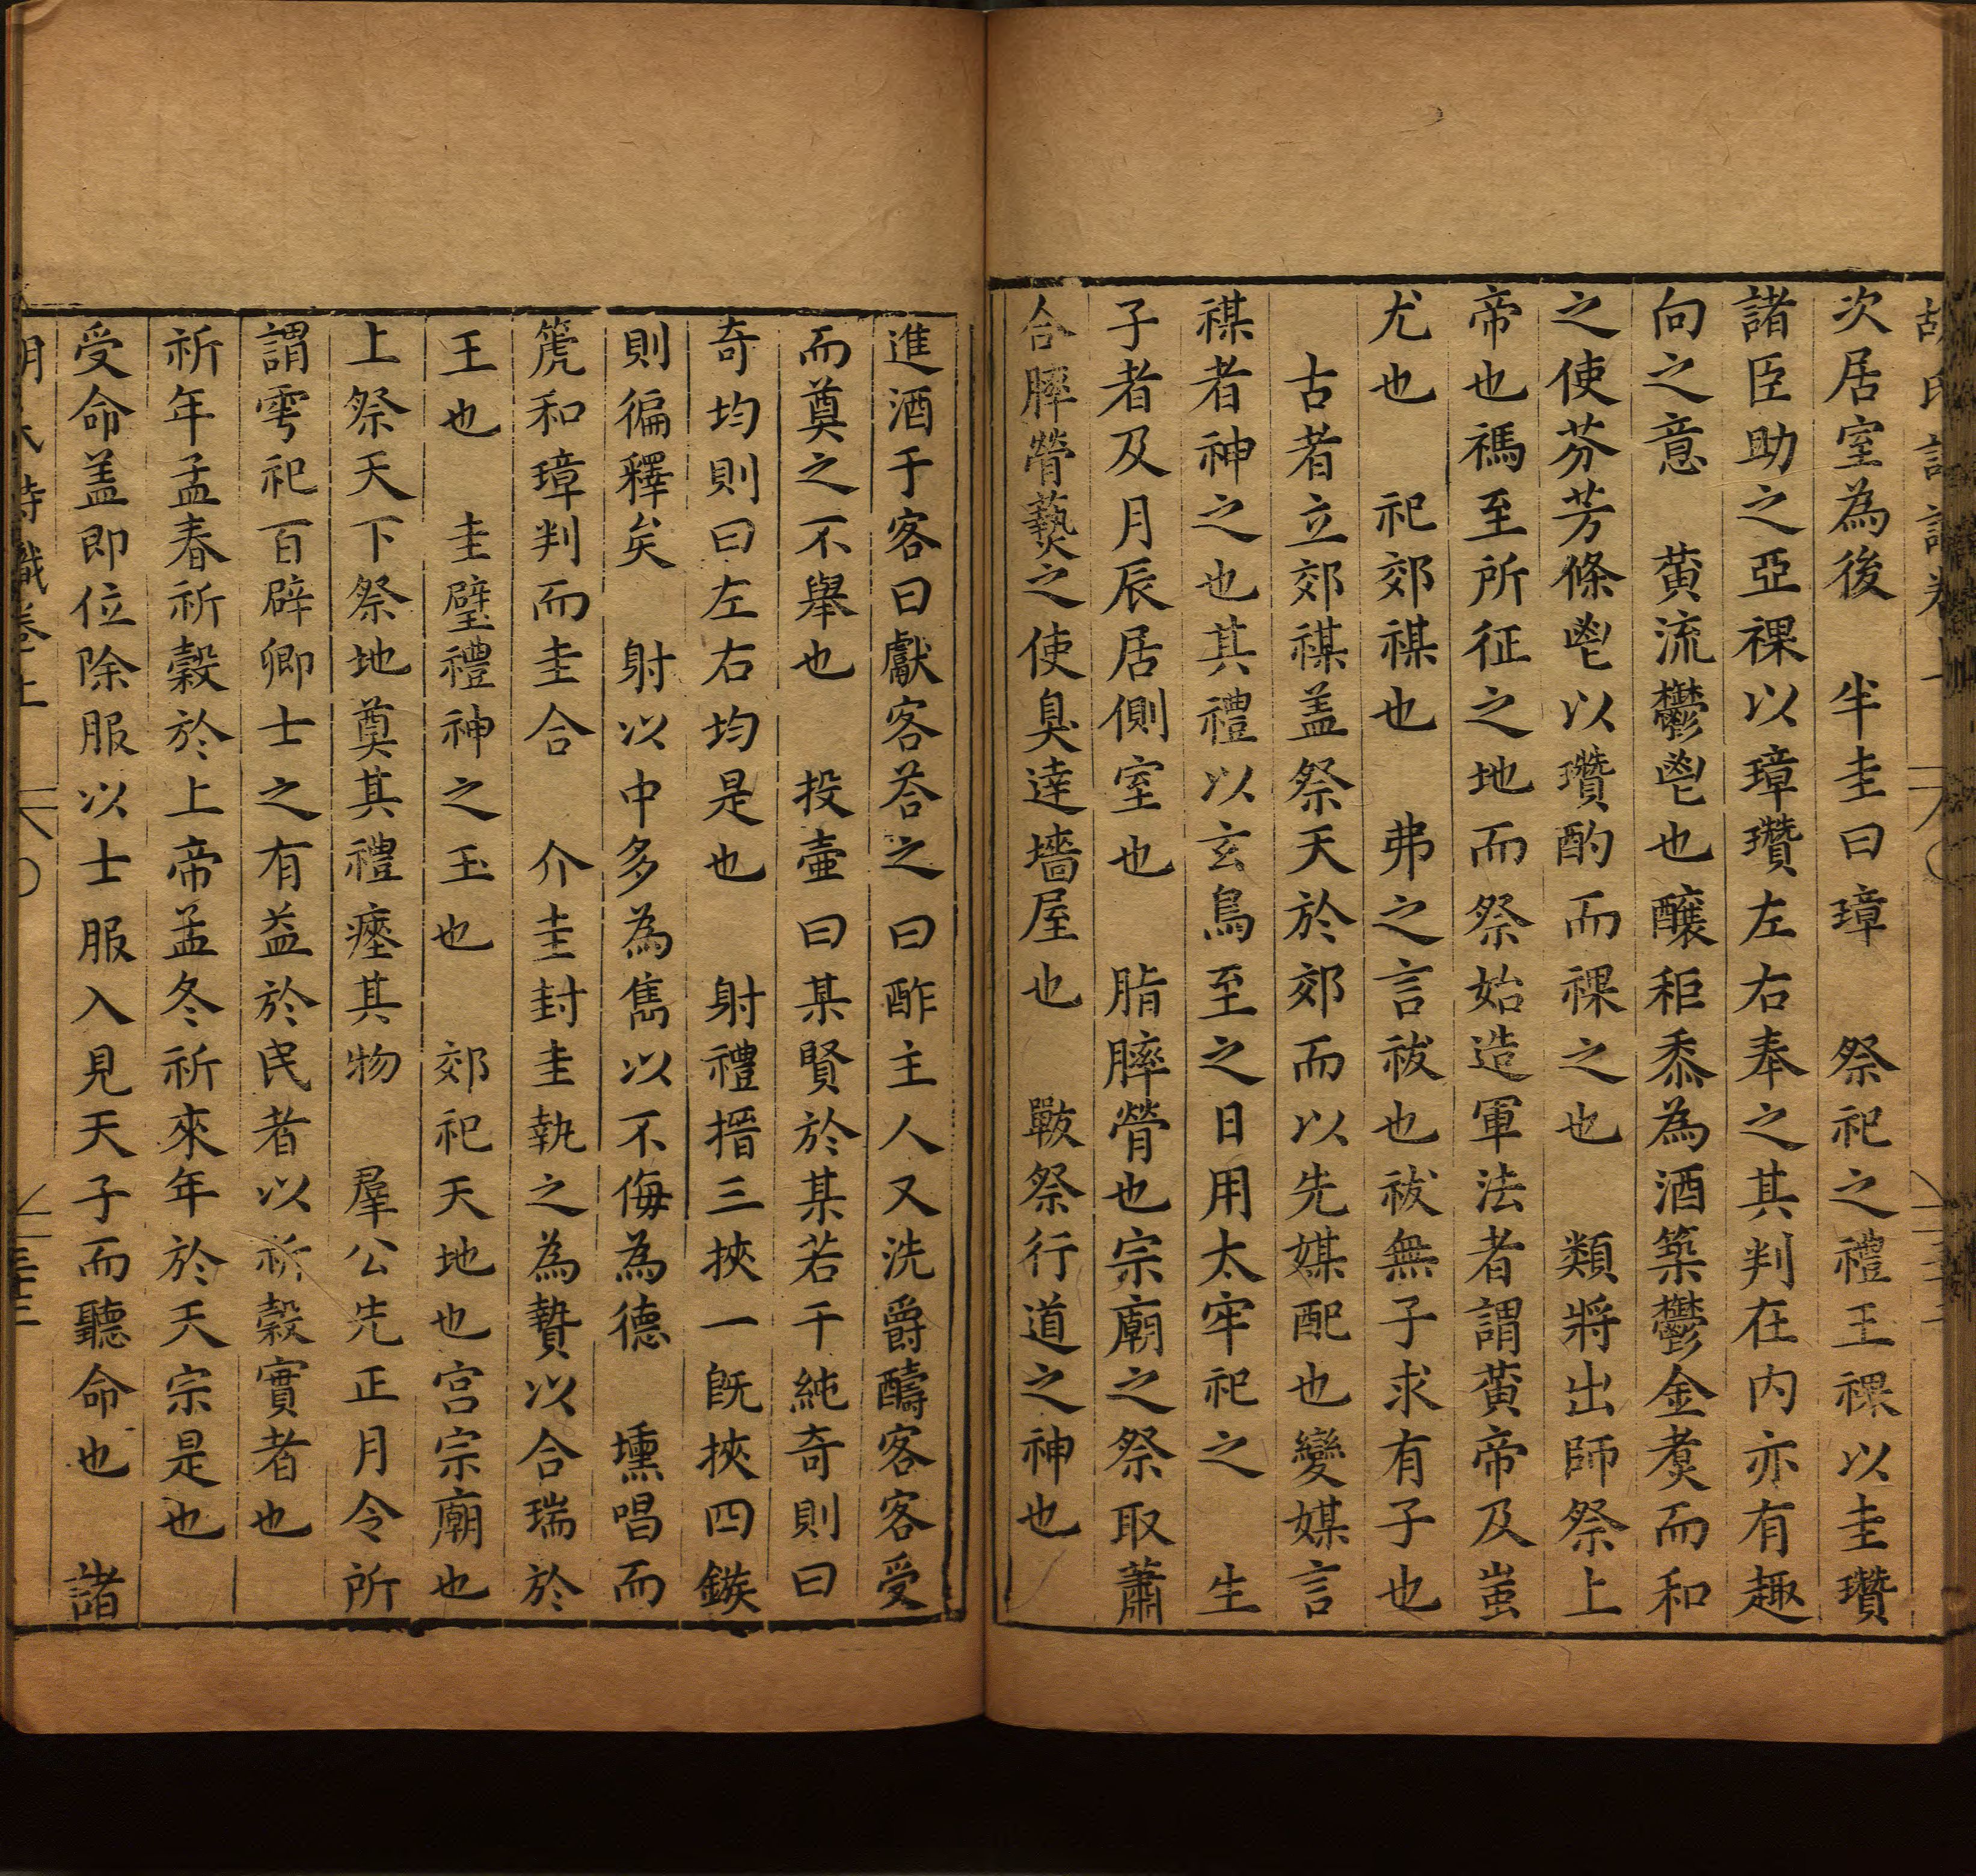 次居室為後　半圭曰璋　祭祀之禮王祼以圭瓚
諸臣助之亞祼以璋瓚左右奉之其判在内亦有趣
向之意　黄流鬱鬯也釀秬黍為酒築鬱金煑而和
之使芬芳條鬯以瓚酌而祼之也　類將出師祭上
帝也禡至所征之地而祭始造軍法者謂黄帝及蚩
尤也　祀郊禖也　弗之言祓也祓無子求有子也
古者立郊禖盖祭天於郊而以先媒配也變媒言
禖者神之也其禮以玄鳥至之日用太牢祀之　生
子者及月辰居側室也　脂膟膋也宗廟之祭取蕭
合膟膋爇之使臭逹墻屋也　軷祭行道之神也
進酒于客曰獻客荅之曰酢主人又洗爵醻客客受
而奠之不舉也　投壷曰某賢於某若干純奇則曰
奇均則曰左右均是也　射禮搢三挾一既挾四鏃
則徧釋矣　射以中多為雋以不侮為德　壎唱而
箎和璋判而圭合　介圭封圭執之為贄以合瑞於
王也　圭璧禮神之玉也　郊祀天地也宫宗廟也
上祭天下祭地奠其禮瘞其物　羣公先正月令所
謂雩祀百辟卿士之有益於民者以祈穀實者也
祈年孟春祈穀於上帝孟冬祈來年於天宗是也
受命盖即位除服以士服入見天子而聽命也　諸